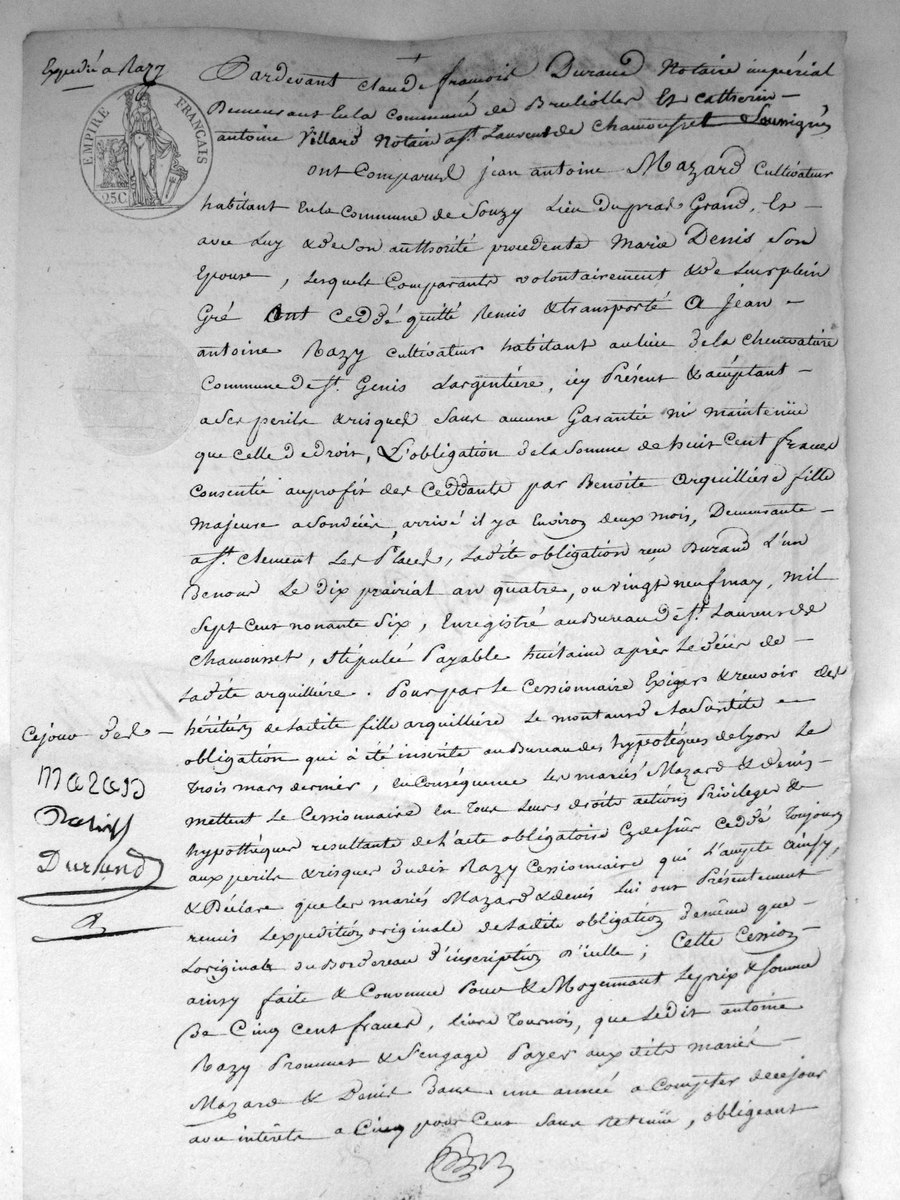 Expedié a Razy
EMPIRE FRANÇAIS
25C
Pardevant Claude françois Durand Notaire impérial
Demeurant En la Commune de Brullioles Et Catherin
antoine Villard Notaire a St. Laurent de Chamousset Soussignés
ont Comparus jean antoine Mazard Cultivateur
habitant En la Commune de Souzy Lieu du pras Grand, Et
avec Luy & de Son authorité procedente Marie Denis Son
Epouse, Lesquels Comparants volontairement & de Leur plein
Gré Ont Ceddé quitté Remis & transporté a jean
antoine Razy Cultivateur habitant au lieu de la
Commune de St. Genis Largentière, icy Présent & acceptant
a Ses perils & risques Sans aucune Garantie ni maintenüe
que Celle de droit, L'obligation de la Somme de huit Cent francs
Consentie au profit des Ceddants par Benoite Arquillière fille
Majeure a Son décès, arrivé il y a Environ deux mois, Demeurante
a St. Clement Les Places, Ladite obligation reçue Durand L'un
De nous Le dix prairial an quatre, ou vingt neuf may, Mil
Sept Cent nonante Six, Enregistré au Bureau de St. Laurent de
Chamousset, Stipulée Payable huitaine après Le décès de
Ladite arquillière. Pour par Le Cessionnaire Exiger & recevoir des
héritiers de Ladite fille arquillière Le montant de la Susdite
obligation qui a été inscrite au Bureau des hypotèques de Lyon Le
Trois mars dernier, En Conséquence Les mariés Mazard & Denis
mettent Le Cessionnaire En Tous Leurs droits actions Privileges &
hypothèques resultants de L'acte obligatoire Cy dessus Ceddé Toujours
aux perils & risques dudit Razy Cessionnaire qui L'accepte ainsy,
& Déclare que Les mariés Mazard & denis Lui ont Présentement
remis L'expedition originale de Ladite obligation de même que
L'original du Bordereau d'inscription d'icelle; Cette Cession
ainsy faite & Convenue Pour & Moyennant Le prix & Somme
De Cinq Cent francs, Livre Tournois, que Ledit antoine
Razy Promet & S'engage Payer aux dits mariés
Mazard & Denis Dans une année a Compter de ce jour
avec intérêts a Cinq pour Cent Sans Retenüe, obligeant
Ce jour d'ed
Mazard
Durand